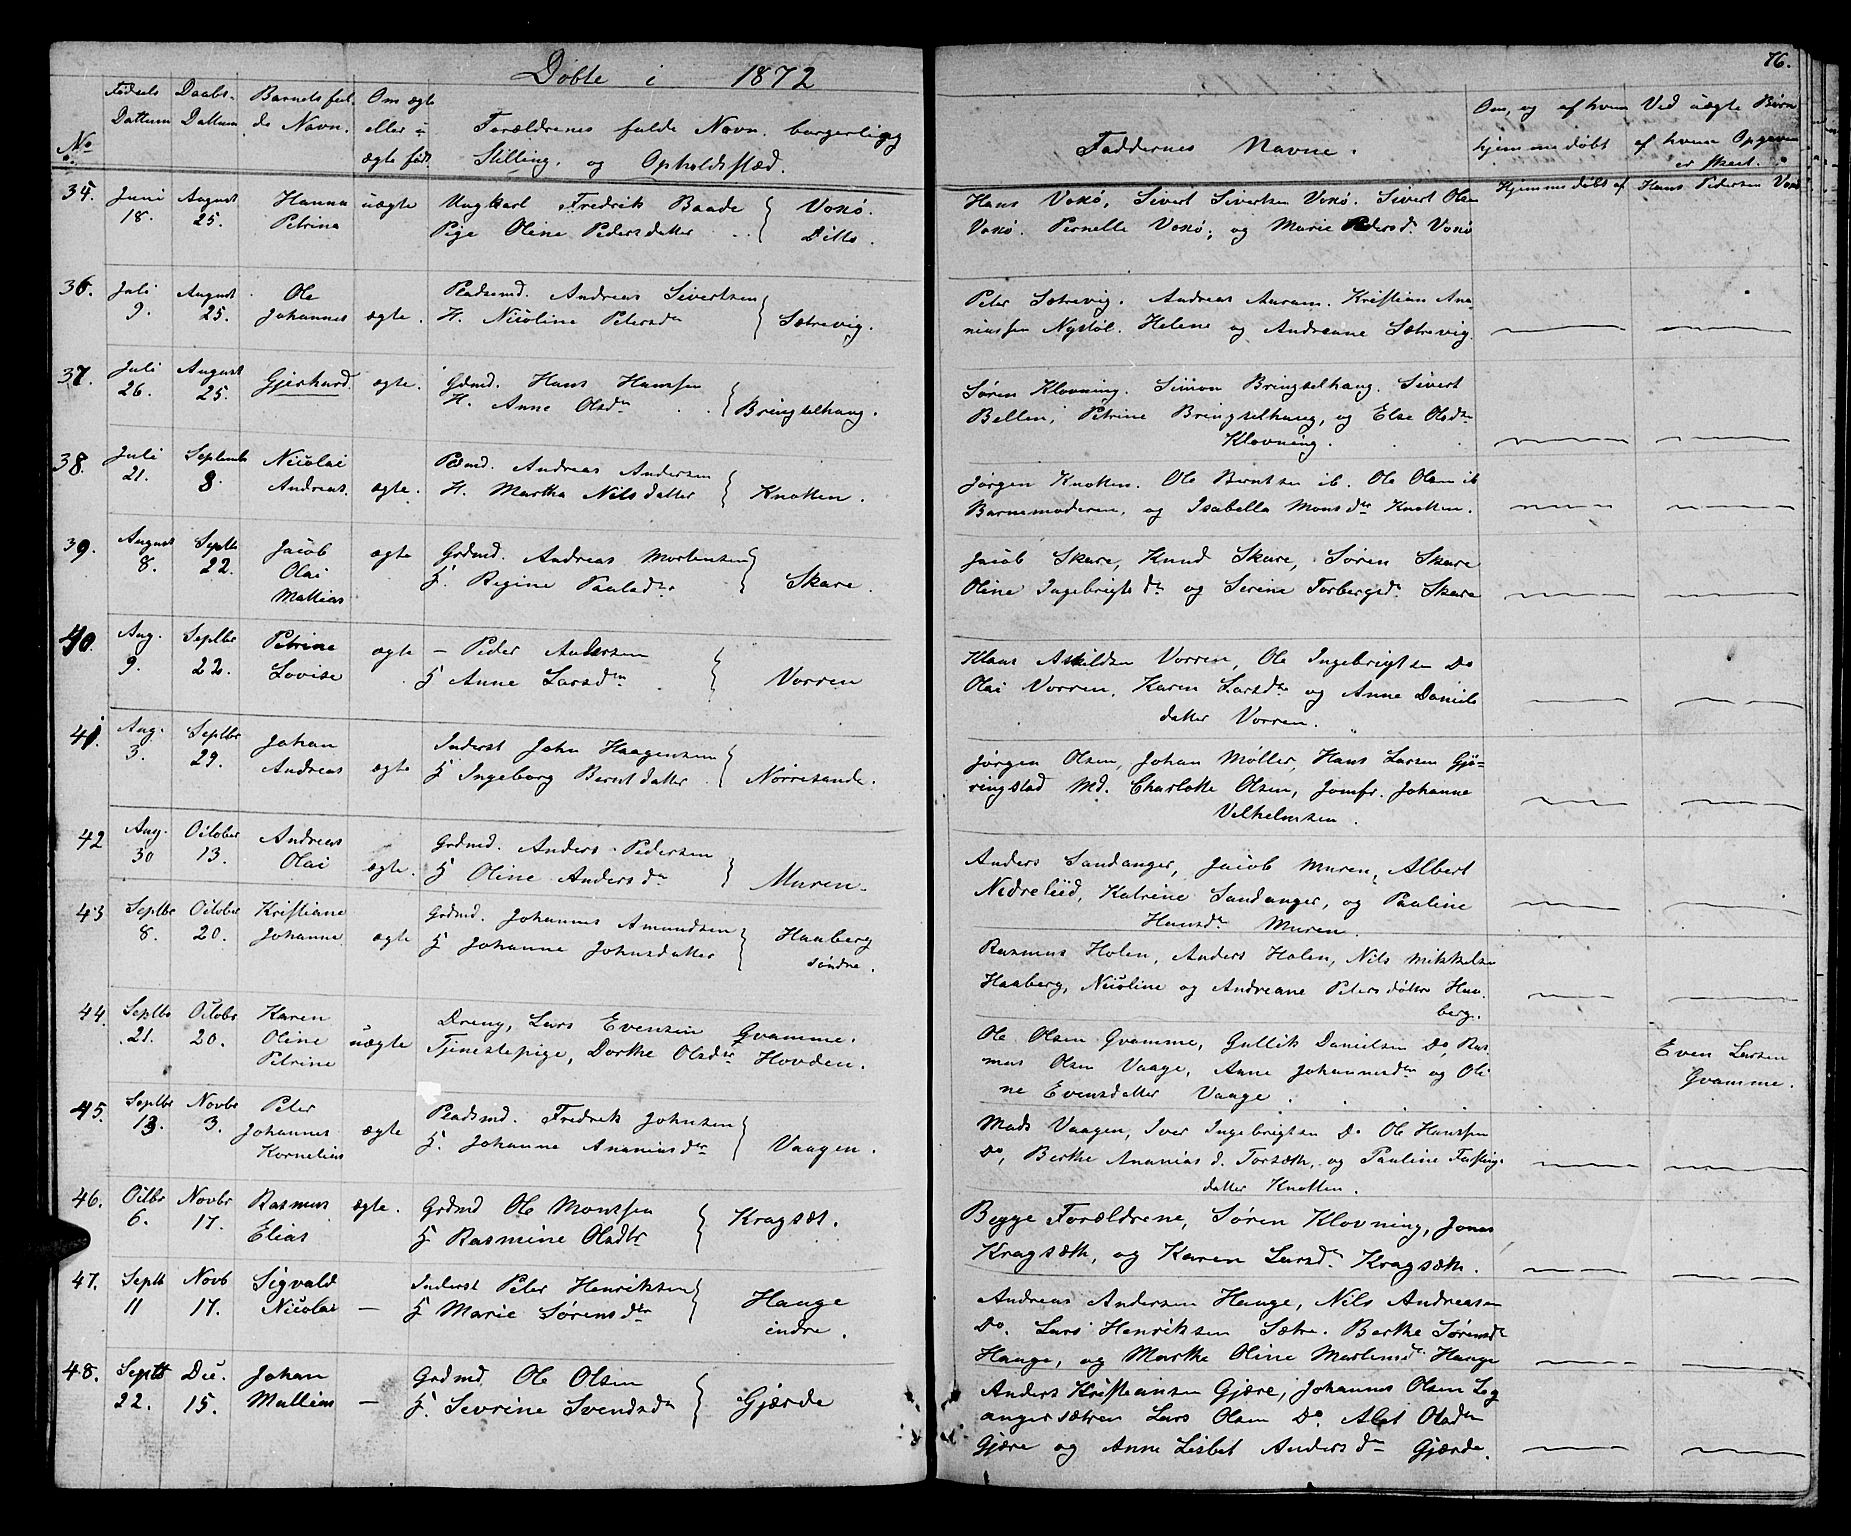 Døbte i 1872
76.
No
Fødsels Dattum
Daabs- Dattum
Barnets fulde Navn.
Om ægte eller uægte født
Forældrenes fulde Navn, borgerlig Stilling, og Opholdssted.
Faddernes Navne.
Om, og af hvem hjemmedøbt
Ved uægte Børn af hvem Opgaven er skeet.
35. Juni 18. August 25. Hanna Petrina uægte
Ungkarl Fredrik Baade
Pige Oline Pedersdatter
Voxø.
Ditto.
Hans Voxø, Sivert Sivertsen Voxø. Sivert Olsen
Voxø. Pernelle Voxø, og Marie Pedersd. Voxø
Hjemmedøbt af Hans Pedersen Voxø
36. Juli 9. August 25. Ole Johannes ægte.
Pladsmd. Andreas Sivertsen
H. Nicoline Petersdr
Sætrevig.
Peter Sætrevig. Andreas Aaram. Kristian Ana-
niassen Nystøl. Helene og Andreane Sætrevig.
37. Juli 26. August 25. Gjerhard. ægte.
Grdmd. Hans Hanssen
H. Anne Olsdr
Bringselhaug.
Søren Klovning. Simon Bringselhaug. Sivert
Bellen, Petrine Bringselhaug, og Else Olsdr
Klovning.
38. Juli 21. Septemb 8. Nicolai Andreas. ægte.
Plsmd. Andreas Andersen
H. Martha Nilsdatter
Knotten.
Jørgen Knotten. Ole Berntsen ib. Ole Olsen ib
Barnemoderen, og Isabella Monsdr Knotten.
39. August 8. Septb 22. Jacob Olai Mathias ægte
Grdmd. Andreas Mortensen
H. Regine Paulsdr
Skare.
Jacob Skare, Knud Skare, Søren Skare
Oline Ingebrigtsdr og Serine Torbergsd. Skare
40. Aug. 9. Septbr 22. Petrine Lovise ægte
– Peder Andersen
H Anne Larsdr
Vorren
Klaus Askildsen Vorren, Ole Ingebrigtsen Do
Olai Vorren, Karen Larsdr og Anne Daniels
datter Vorren.
41. Aug. 3. Septbr 29. Johan Andreas ægte
Inderst John Haagensen
H Ingeborg Berntdatter
Nørresande.
Jørgen Olsen, Johan Møller, Hans Larsen Gjø-
ringstad Md. Charlotte Olsen, Jomfr. Johanne
Velhelmsen.
42 Aug. 30 October 13. Andreas Olai ægte.
Grdmd. Anders Pedersen
H Oline Andersdr
Muren.
Anders Sandanger, Jacob Muren, Albert
Nedrelid, Katrine Sandanger, og Pauline
Hansdr Muren.
43 Septbr 8. October 20. Kristiane Johanne ægte
Grdmd. Johannes Amundsen
H Johanne Johnsdatter
Haaberg søndre.
Rasmus Holen, Anders Holen, Nils Mikkelsen
Haaberg, Nicoline og Andreane Petersdøtre Haa-
berg.
44. Septbr 21. Octobr 20. Karen Oline Petrine uægte
Dreng, Lars Evensen Gvamme.
Tjenestepige, Dorthe Olsdr Hovden.
Ole Olsen Gvamme, Gullik Danielsen Do, Ras-
mus Olsen Vaage, Anne Johannesdr og Oli-
ne Evensdatter Vaage.
Even Larsen
Gvamme.
45. Septbr 13. Novbr 3. Peter Johannes Kornelius ægte
Pladsmd. Fredrik Johnsen
H. Johanne Ananiasdr
Vaagen.
Mads Vaagen, Iver Ingebrigtsen Do Ole Hanssen
Do, Berthe Ananiasd. Torsæth, og Pauline Fasting-
datter Knotten.
46. Octbr 6. Novbr 17. Rasmus Elias ægte.
Grdmd Ole Monssen
H Rasmine Olsdtr
Kragsæt.
Begge Forældrene, Søren Klovning, Jonas
Kragsæth, og Karen Larsdr Kragsæth.
47. Septb 11 Novb 17. Sigvald Nicolai –
Inderst Peter Henriksen
H Marie Sørensdtr
Hauge indre.
Andreas Andersen Hauge, Nils Andreasen
Do. Lars Henriksen Sætre. Berthe Sørensdr
Hauge, og Marthe Oline Martensdr Hauge
48. Septb 22. Dec. 15. Johan Mathias –
Grdmd. Ole Olsen
H. Sevrine Svendsdr
Gjærde
Anders Kristiansen Gjære, Johannes Olsen Leg-
angersætren Lars Olsen Do. Alet Olsdr
Gjære og Anne Lisbet Andersdr Gjærde.